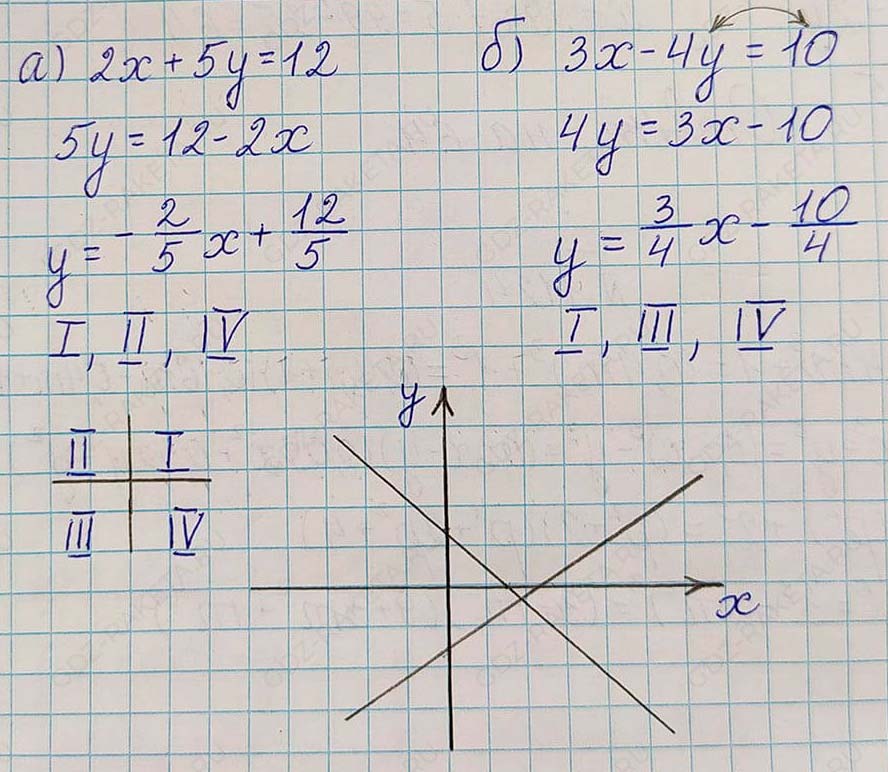 а) 2x + 5y = 12
5y = 12 - 2x
y = -2/5 x + 12/5
I, II, IV
б) 3x - 4y = 10
4y = 3x - 10
y = 3/4 x - 10/4
I, III, IV
II I
III IV
y
x